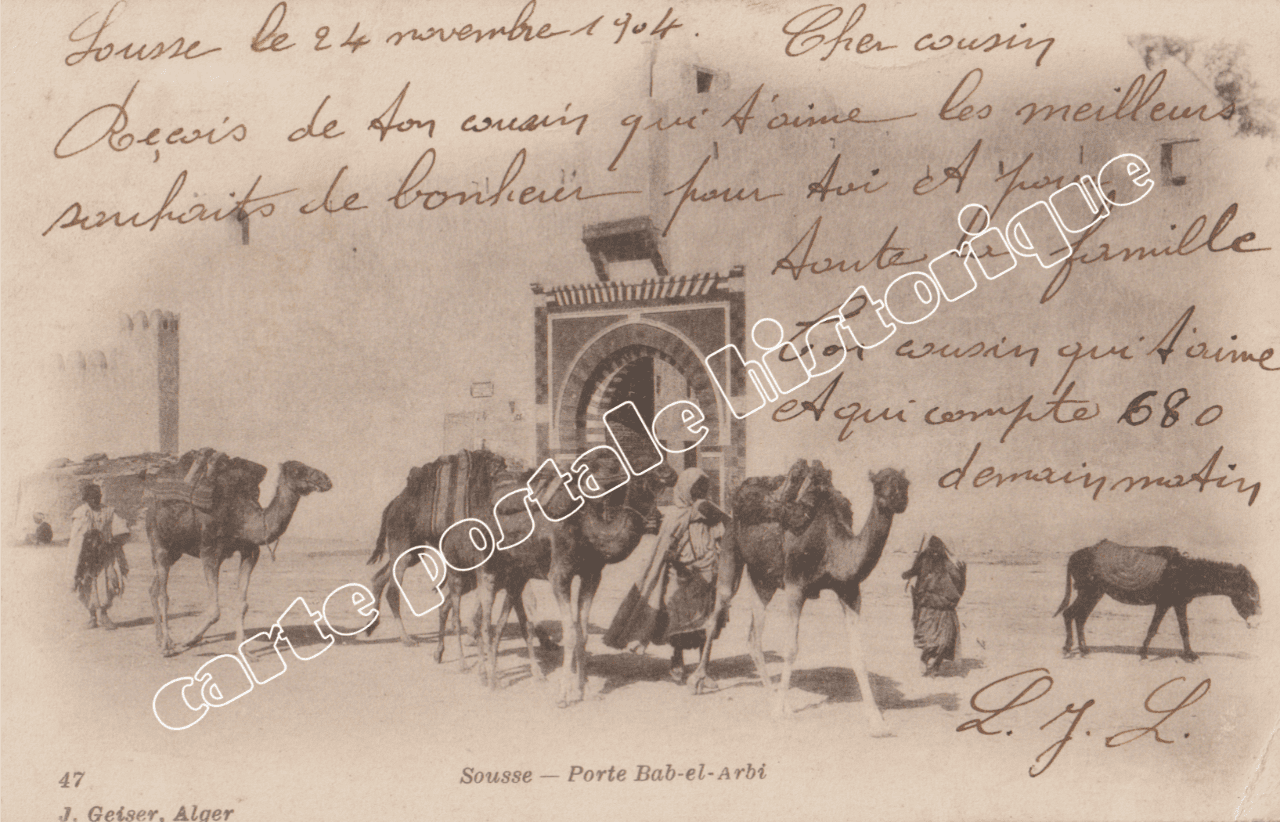 Sousse le 24 novembre 1904. Cher cousin
Reçois de ton cousin qui t'aime les meilleurs
souhaits de bonheur pour toi et pour
toute la famille
Ton cousin qui t'aime
et qui compte 680
demain matin
L. J. L.
carte postale historique
47 Sousse — Porte Bab-el-Arbi
J. Geiser, Alger